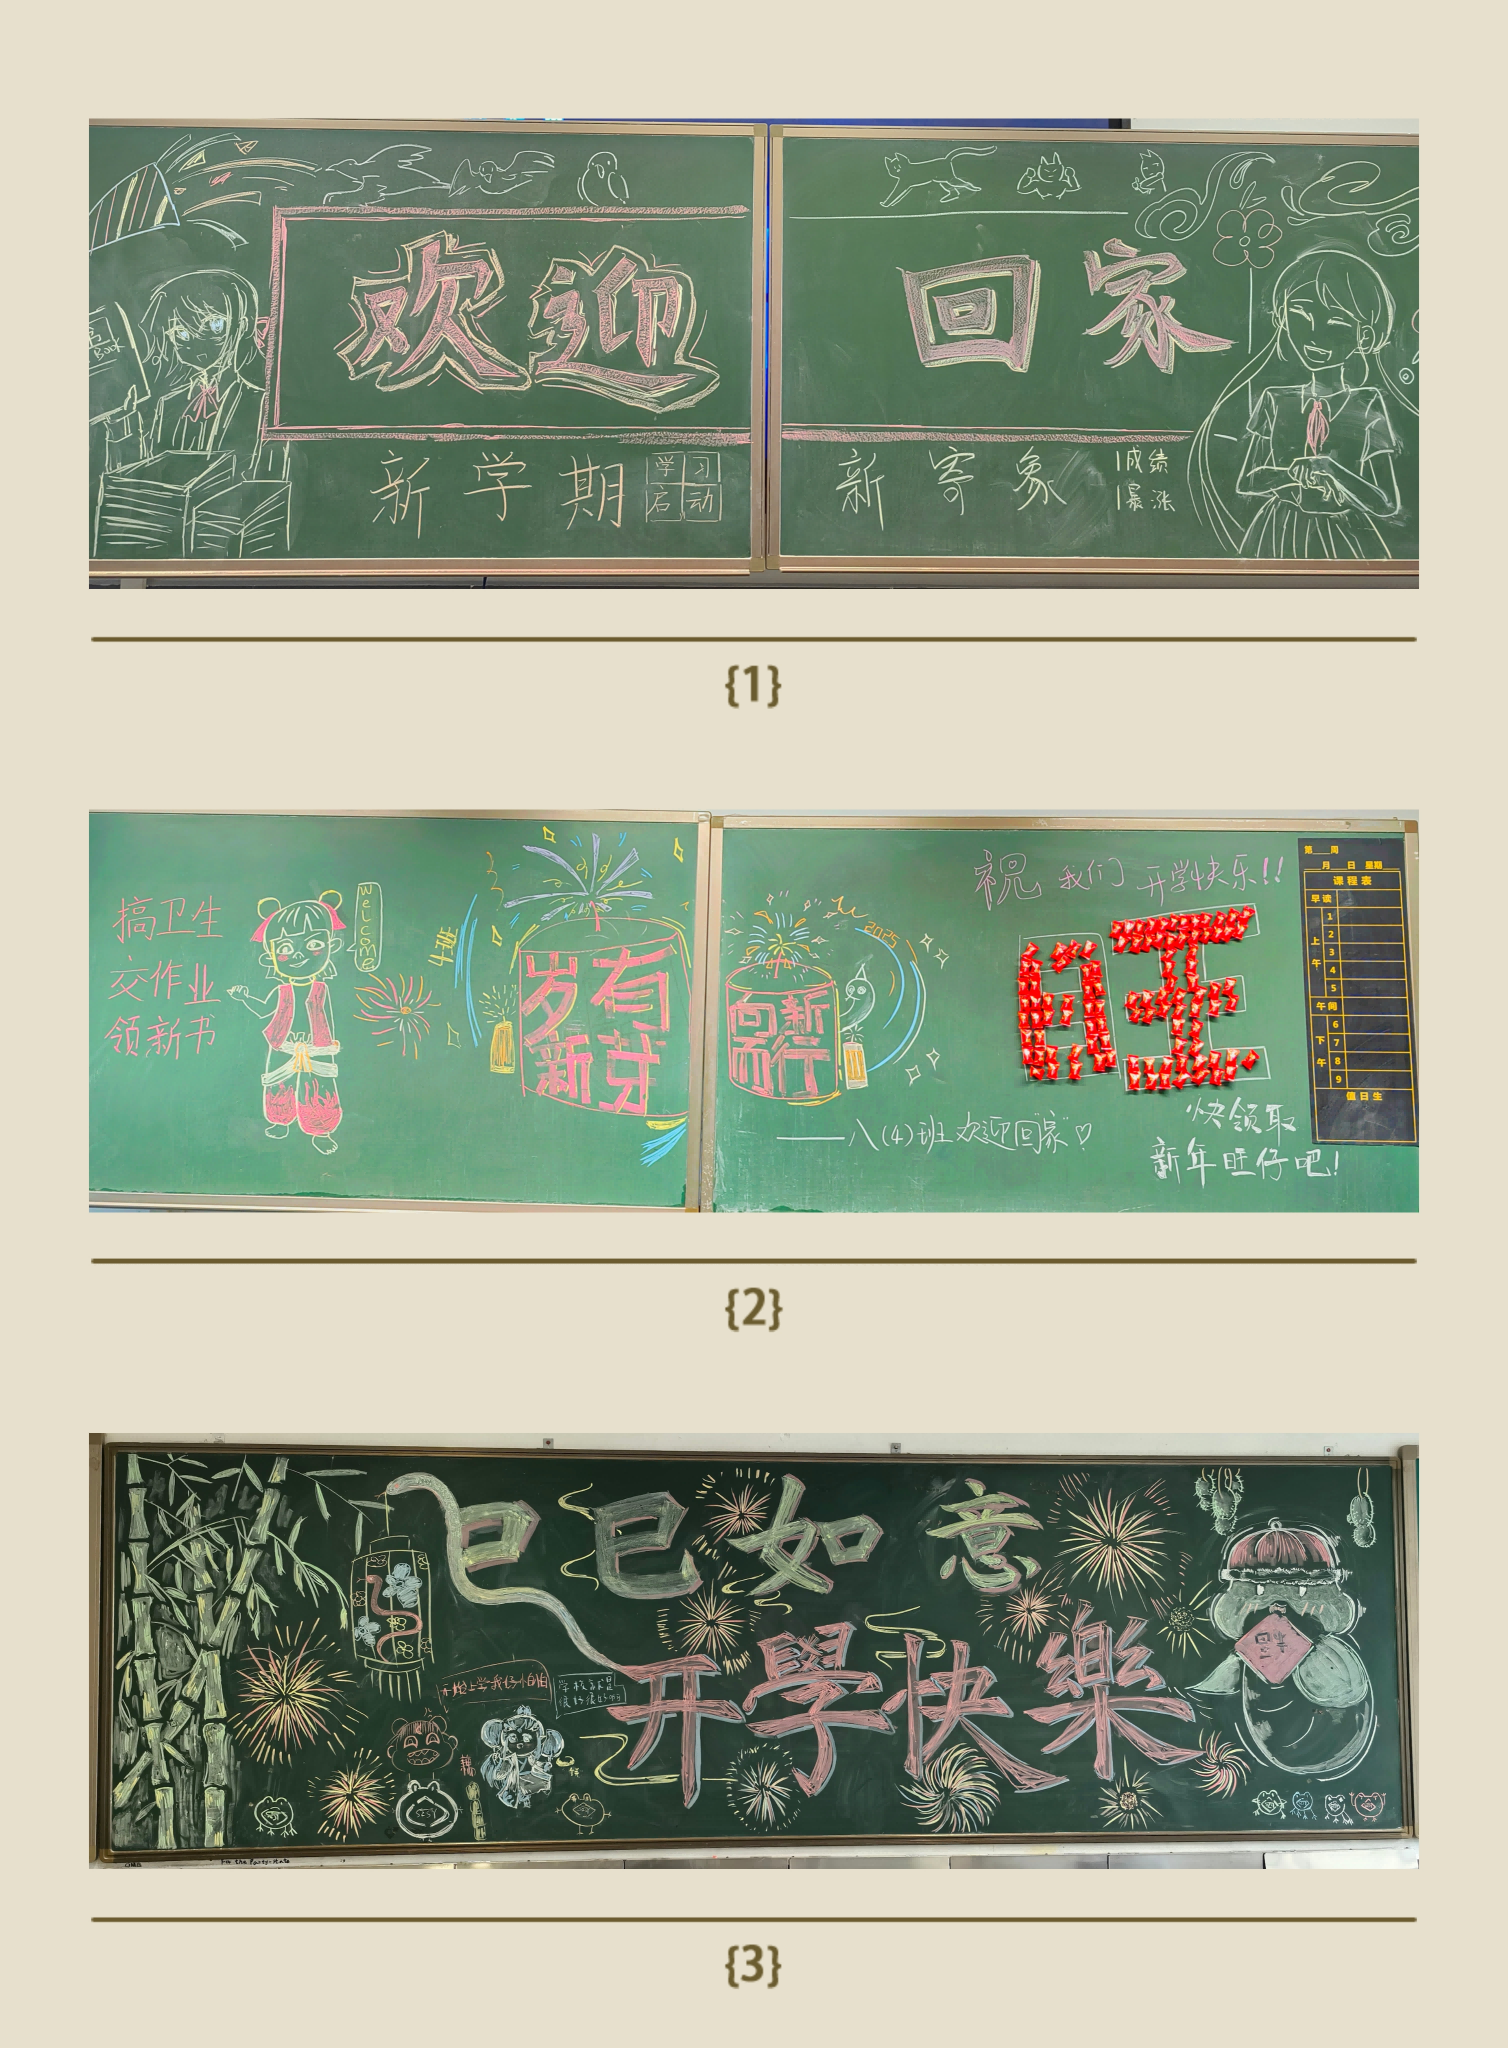 Book
欢迎
新学期
学习
启动
回家
新寄象
成绩
暴涨
{1}
搞卫生
交作业
领新书
Welcome
4班
岁有
新芽
向新
而行
2025
祝我们开学快乐!!
旺
——八(4)班欢迎回“家”♡
快领取
新年旺仔吧!
第__周
__月__日 星期__
课程表
早读
上午
1
2
3
4
5
午间
下午
6
7
8
9
值日生
{2}
巳巳如意
开學快樂
开始上学我好怕怕
{3}